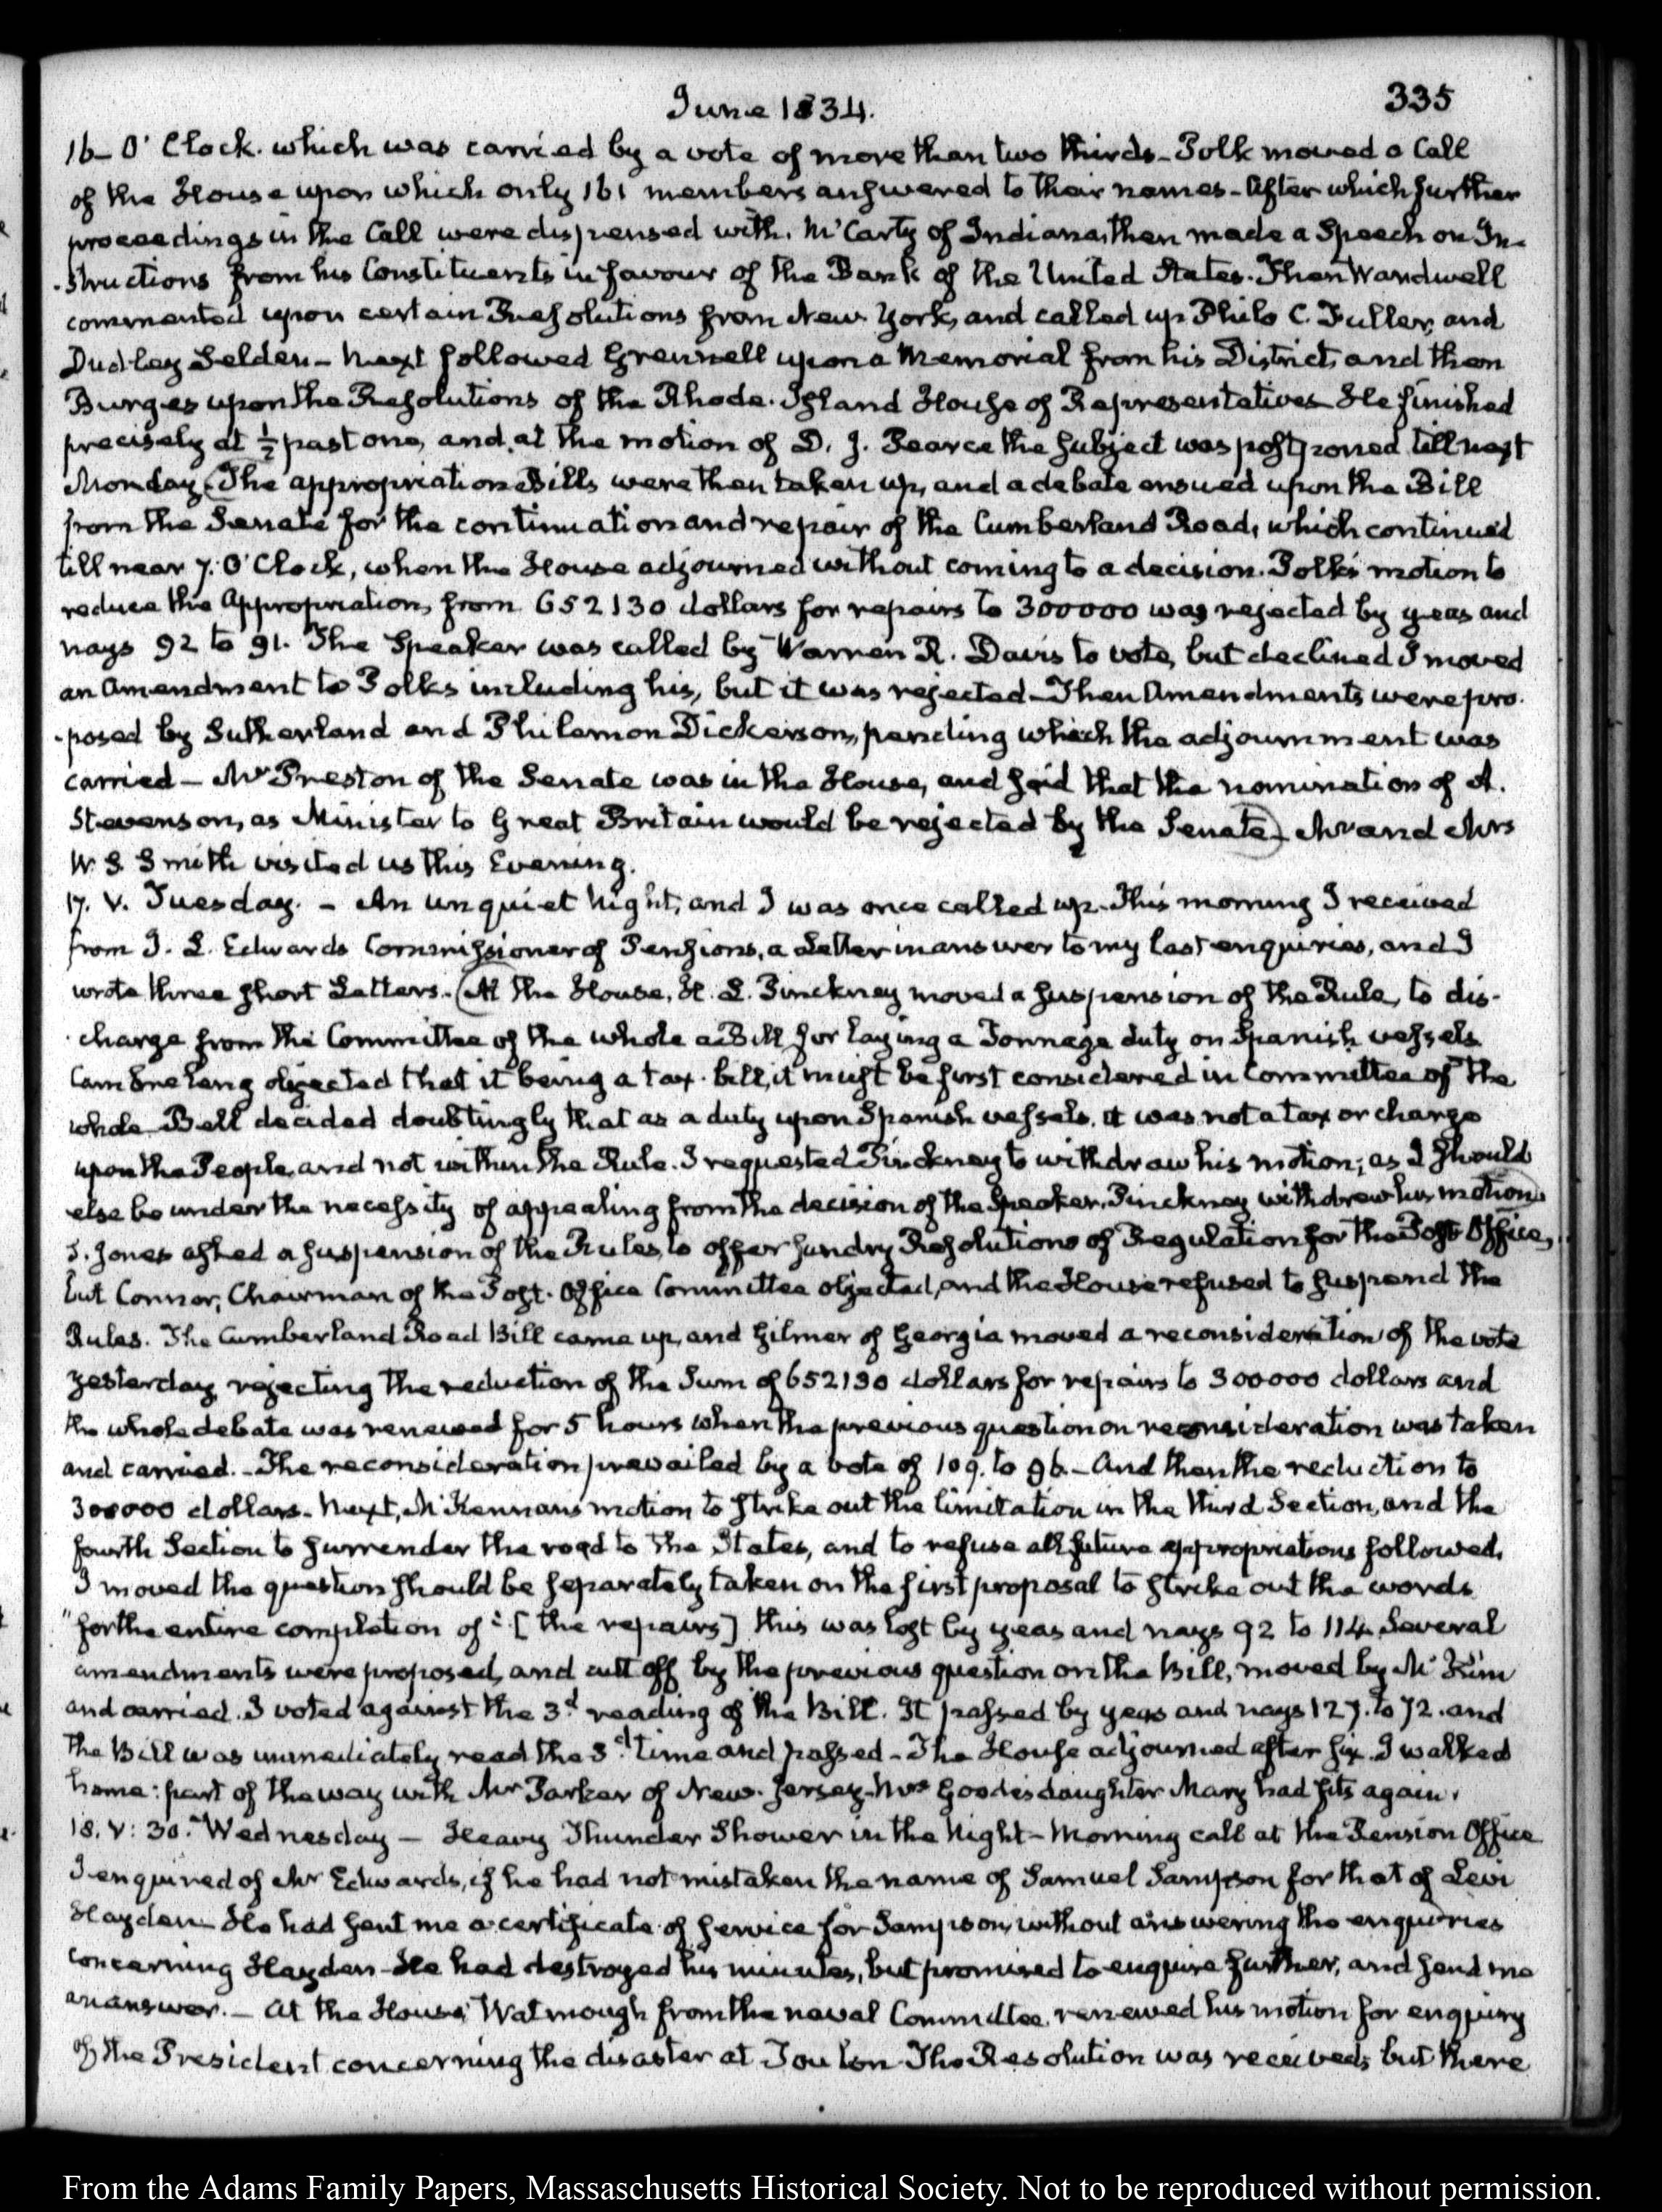 June 1834.
335
16_ O' Clock. which was carried by a vote of more than two thirds_ Polk moved a Call
of the House upon which only 161 members answered to their names_ After which further
proceedings in the Call were dispensed with. McCarty of Indiana, then made a Speech on In-
-structions from his Constituents in favour of the Bank of the United States. Then Wardwell
commented upon certain Resolutions from New York, and called up Philo C. Fuller, and
Dudley Selden_ Next followed Grennell upon a Memorial from his District, and then
Burges upon the Resolutions of the Rhode-Island House of Representatives_ He finished
precisely at ½ past one, and at the motion of D. J. Pearce the subject was postponed till next
Monday. (The appropriation Bills were then taken up, and a debate ensued upon the Bill
from the Senate for the continuation and repair of the Cumberland Road, which continued
till near 7. O'Clock, when the House adjourned without coming to a decision. Polk's motion to
reduce the Appropriation, from 652130 dollars for repairs to 300000 was rejected by yeas and
nays 92 to 91. The Speaker was called by Warren R. Davis to vote, but declined I moved
an Amendment to Polks including his, but it was rejected_ Then Amendments were pro-
-posed by Sutherland and Philemon Dickerson, pending which the adjournment was
carried_ Mr Preston of the Senate was in the House, and said that the nomination of A.
Stevenson, as Minister to Great Britain would be rejected by the Senate)_ Mr and Mrs
W. S. Smith visited us this Evening.
17. V. Tuesday. _ An unquiet Night, and I was once called up_ This morning I received
from J. L. Edwards Commissioner of Pensions, a Letter in answer to my last enquiries, and I
wrote three short Letters_ (At the House, H. L. Pinckney moved a suspension of the Rule, to dis-
-charge from the Committee of the whole a Bill for laying a Tonnage duty on Spanish vessels
Cambreleng objected that it being a tax-bill, it must be first considered in Committee of the
whole_ Bell decided doubtingly that as a duty upon Spanish vessels. it was not a tax or charge
upon the People, and not within the Rule. I requested Pinckney to withdraw his motion; as I should
else be under the necessity of appealing from the decision of the Speaker. Pinckney withdrew his motion)
S. Jones asked a suspension of the Rules, to offer sundry Resolutions of Regulation for the Post Office,
but Connor, Chairman of the Post-Office Committee objected, and the House refused to suspend the
Rules. The Cumberland Road Bill came up, and Gilmer of Georgia moved a reconsideration of the vote
yesterday rejecting the reduction of the Sum of 652130 dollars for repairs to 300000 dollars and
the whole debate was renewed for 5 hours when the previous question on reconsideration was taken
and carried._ The reconsideration prevailed by a vote of 109. to 96._ And then the reduction to
300000 dollars_ Next, McKennans motion to strike out the limitation in the third Section, and the
fourth Section to surrender the road to the States, and to refuse all future appropriations followed.
I moved the question should be separately taken on the first proposal to strike out the words
"for the entire completion of" [the repairs] this was lost by yeas and nays 92 to 114. Several
amendments were proposed, and cutt off by the previous question on the Bill, moved by McKim
and carried. I voted against the 3d reading of the Bill. It passed by yeas and nays 127. to 72. and
The Bill was immediately read the 3d time and passed_ The House adjourned after six. I walked
home: part of the way with Mr Parker of New-Jersey_ Mrs Goods daughter Mary had fits again.
18. V: 30. Wednesday _ Heavy Thunder Shower in the Night_ Morning call at the Pension Office
I enquired of Mr Edwards, if he had not mistaken the name of Samuel Sampson for that of Levi
Hayden_ He had sent me a certificate of service for Sampson, without answering the enquiries
concerning Hayden_ He had destroyed his minutes, but promised to enquire further, and send me
an answer. _ At the House, Watmough from the naval Committee, renewed his motion for enquiry
of the President concerning the disaster at Toulon_ The Resolution was received, but there
From the Adams Family Papers, Massachusetts Historical Society. Not to be reproduced without permission.